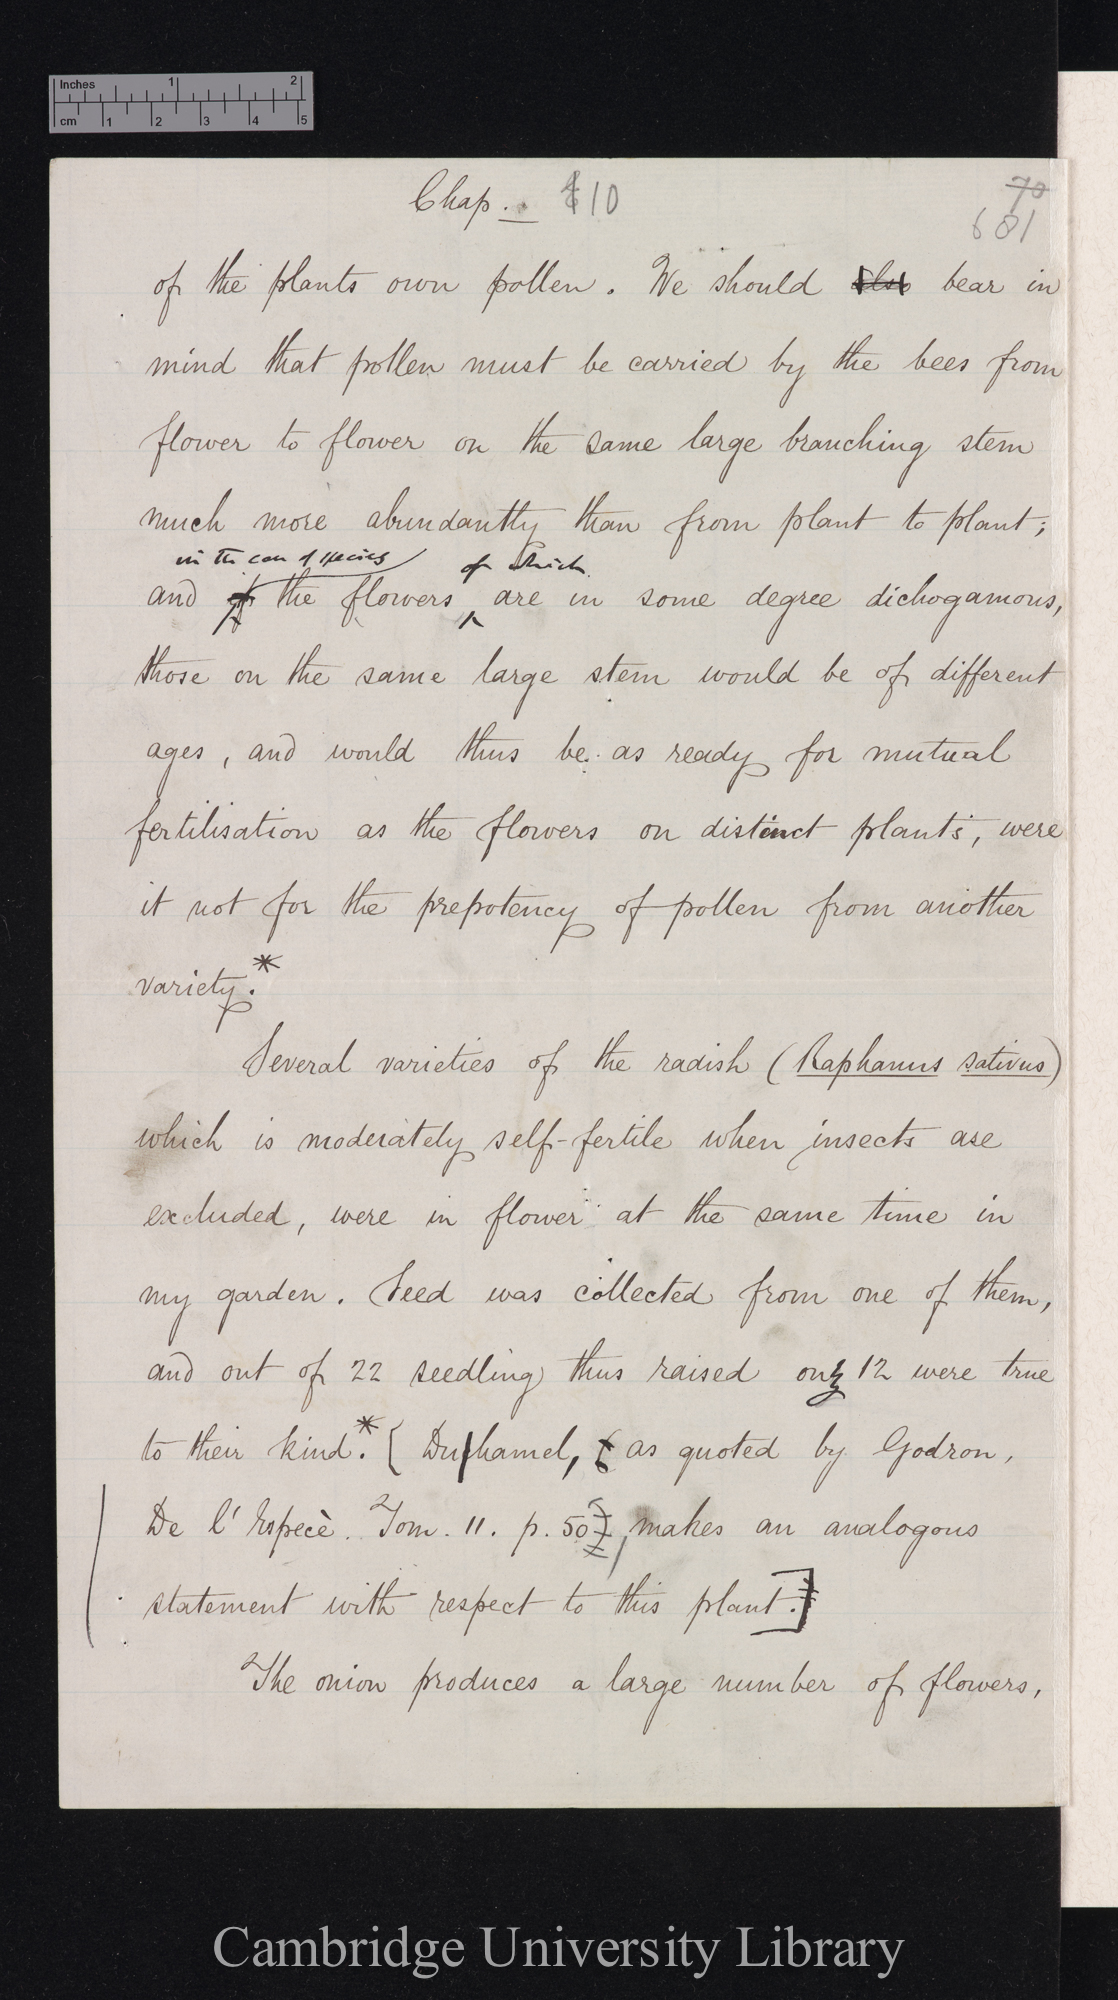 Inches 1 2
cm 1 2 3 4 5
Chap. 10
70
681
of the plants own pollen. We should also bear in
mind that pollen must be carried by the bees from
flower to flower on the same large branching stem
much more abundantly than from plant to plant;
in the case of species of which
and if the flowers are in some degree dichogamous,
those on the same large stem would be of different
ages, and would thus be as ready for mutual
fertilisation as the flowers on distinct plants, were
it not for the prepotency of pollen from another
variety.*
Several varieties of the radish (Raphanus sativus)
which is moderately self-fertile when insects are
excluded, were in flower at the same time in
my garden. Seed was collected from one of them,
and out of 22 seedling thus raised only 12 were true
to their kind.* [Duhamel, (as quoted by Godron,
De l'Espècè. Tom. 11. p. 50), makes an analogous
statement with respect to this plant.]
The onion produces a large number of flowers,
Cambridge University Library